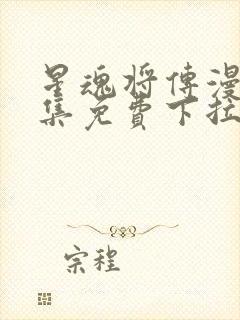 星魂将傳漫
集免費下拉
宗程